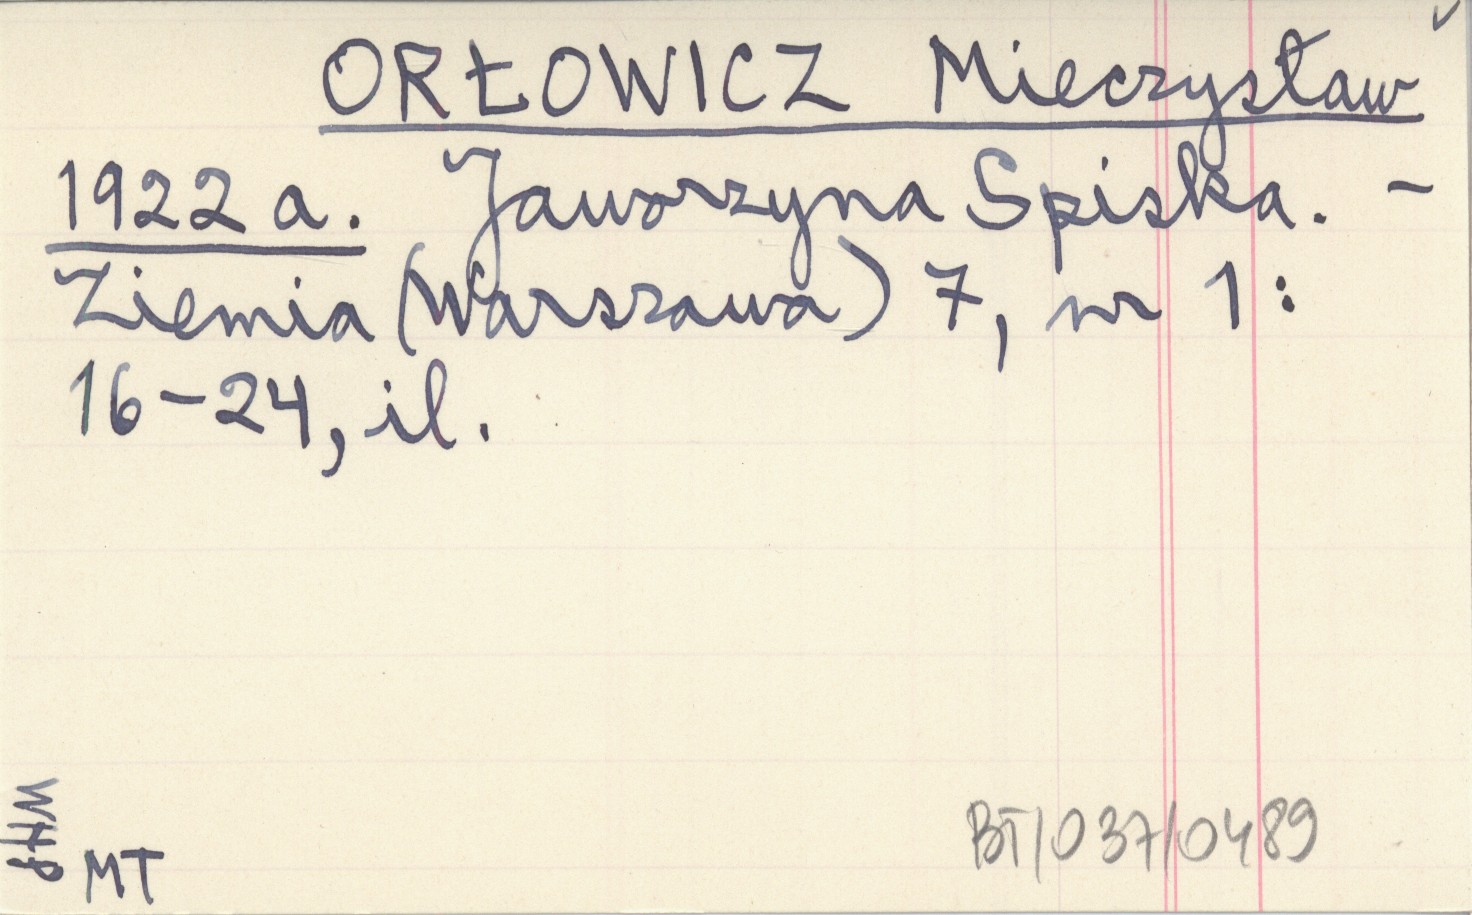 ORŁOWICZ Mieczysław
1922 a. Jaworzyna Spiska. -
Ziemia (Warszawa) 7, nr 1:
16-24, il.
WHP
MT
BT/037/0489